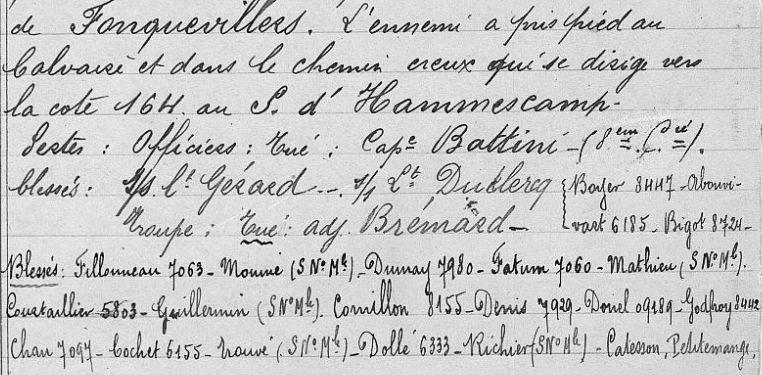 de Fonquevillers. L'ennemi a pris pied au
Calvaire et dans le chemin creux qui se dirige vers
la cote 164 au S. d' Hammescamp-
Pertes : Officiers : Tué : Cape Battini - (8em Cie).
blessés : S/s. Lt Gérard --- s/s Lt Duclercq
Troupe : Tué : adj. Brémard - { Boyer 8447 - Abouvi-
vart 6185 - Bigot 8724 -
Blessés : Fillonneau 7063 - (S No Mle) - Dumay 7980 - Fatum 7060 - Mathieu (S No Mle).
Courtaillier 5803 - Guillermin (S No Mle) Cornillon 8155 - Denis 7929 - 09189 - Godfroy 8442
Chau 7097 - Cochet 6155 - (S No Mle) - Dollé 6333 - Richier (S No Mle) - Catesson, Petitemange,